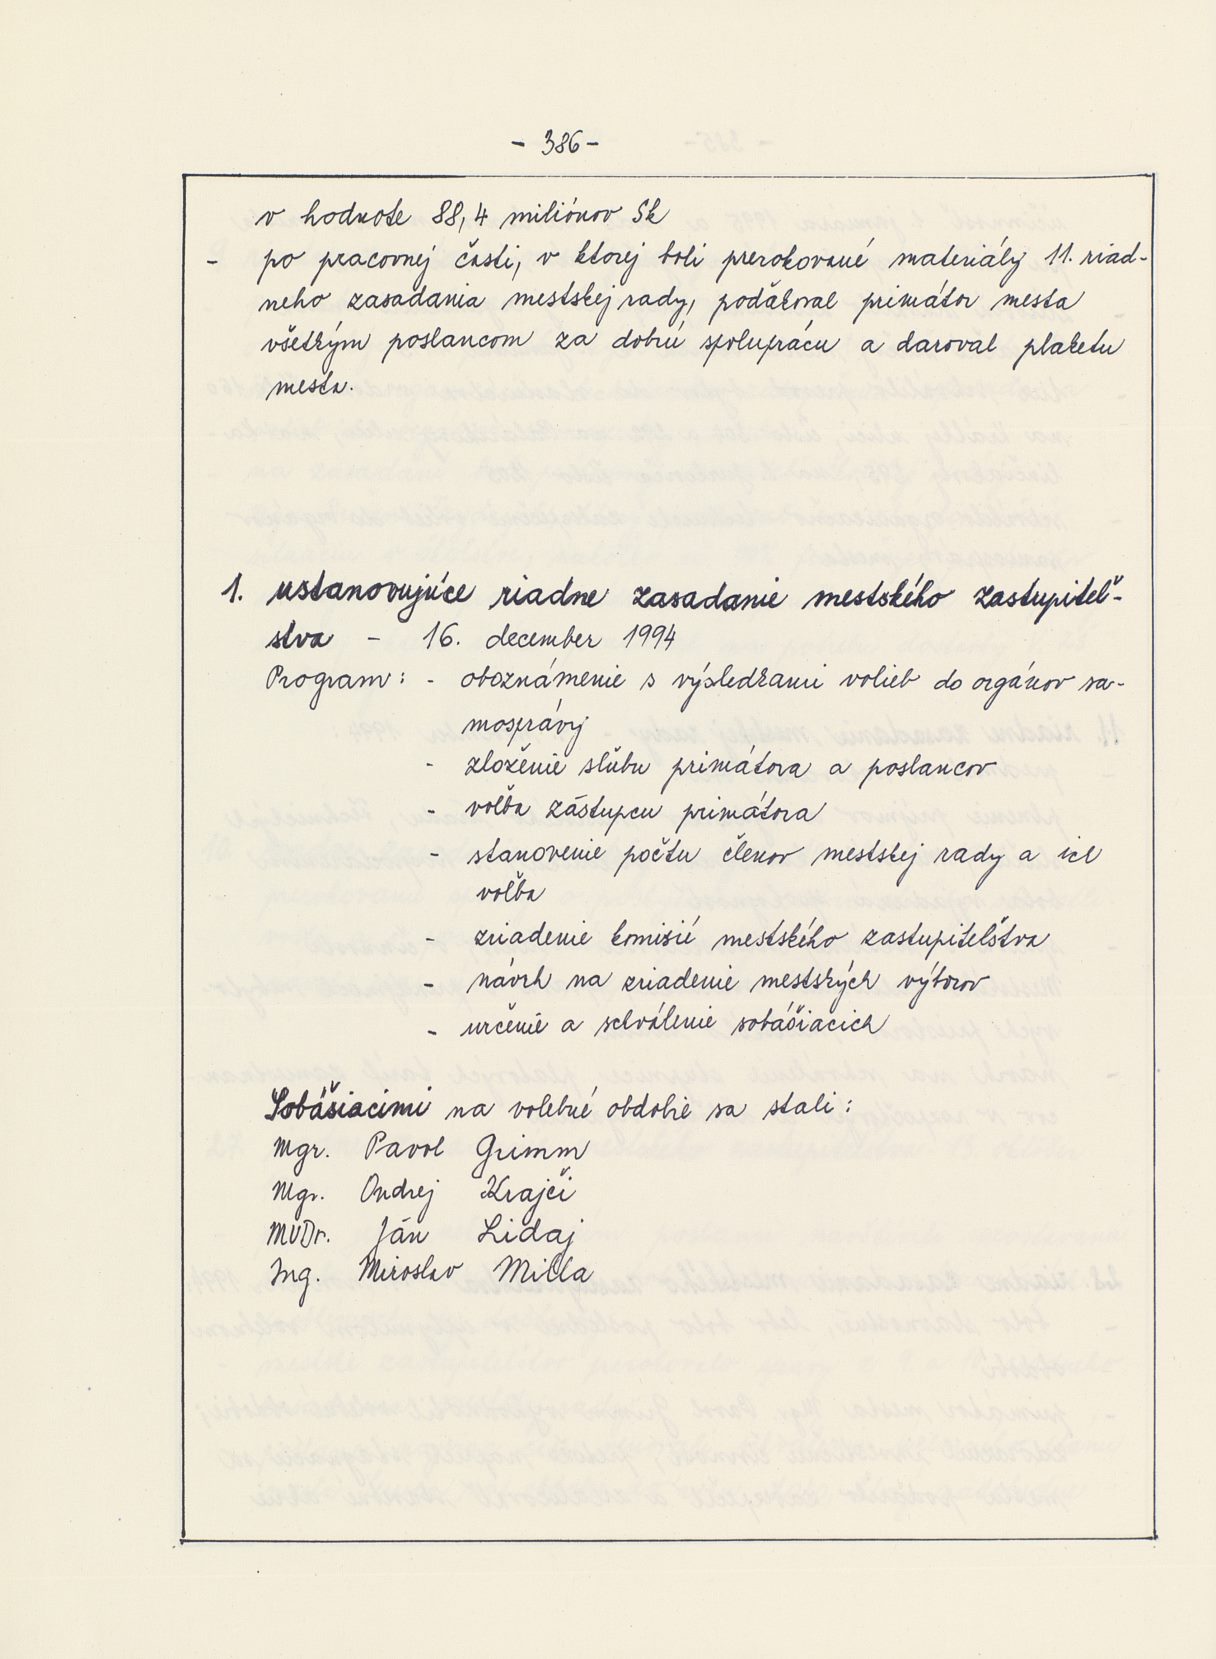 - 386 -
v hodnote 88,4 miliónov Sk
- po pracovnej časti, v ktorej boli prerokované materiály 11. riad-
neho zasadania mestskej rady, poďakoval primátor mesta
všetkým poslancom za dobrú spoluprácu a daroval plaketu
mesta.
1. ustanovujúce riadne zasadanie mestského zastupiteľ-
stva - 16. december 1994
Program: - oboznámenie s výsledkami volieb do orgánov sa-
mosprávy
- zloženie sľubu primátora a poslancov
- voľba zástupcu primátora
- stanovenie počtu členov mestskej rady a ich
voľba
- zriadenie komisií mestského zastupiteľstva
- návrh na zriadenie mestských výborov
- určenie a schválenie sobášiacich
Sobášiacimi na volebné obdobie sa stali:
Mgr. Pavol Grimm
Mgr. Ondrej Krajči
MVDr. Ján Lidaj
Ing. Miroslav Milla